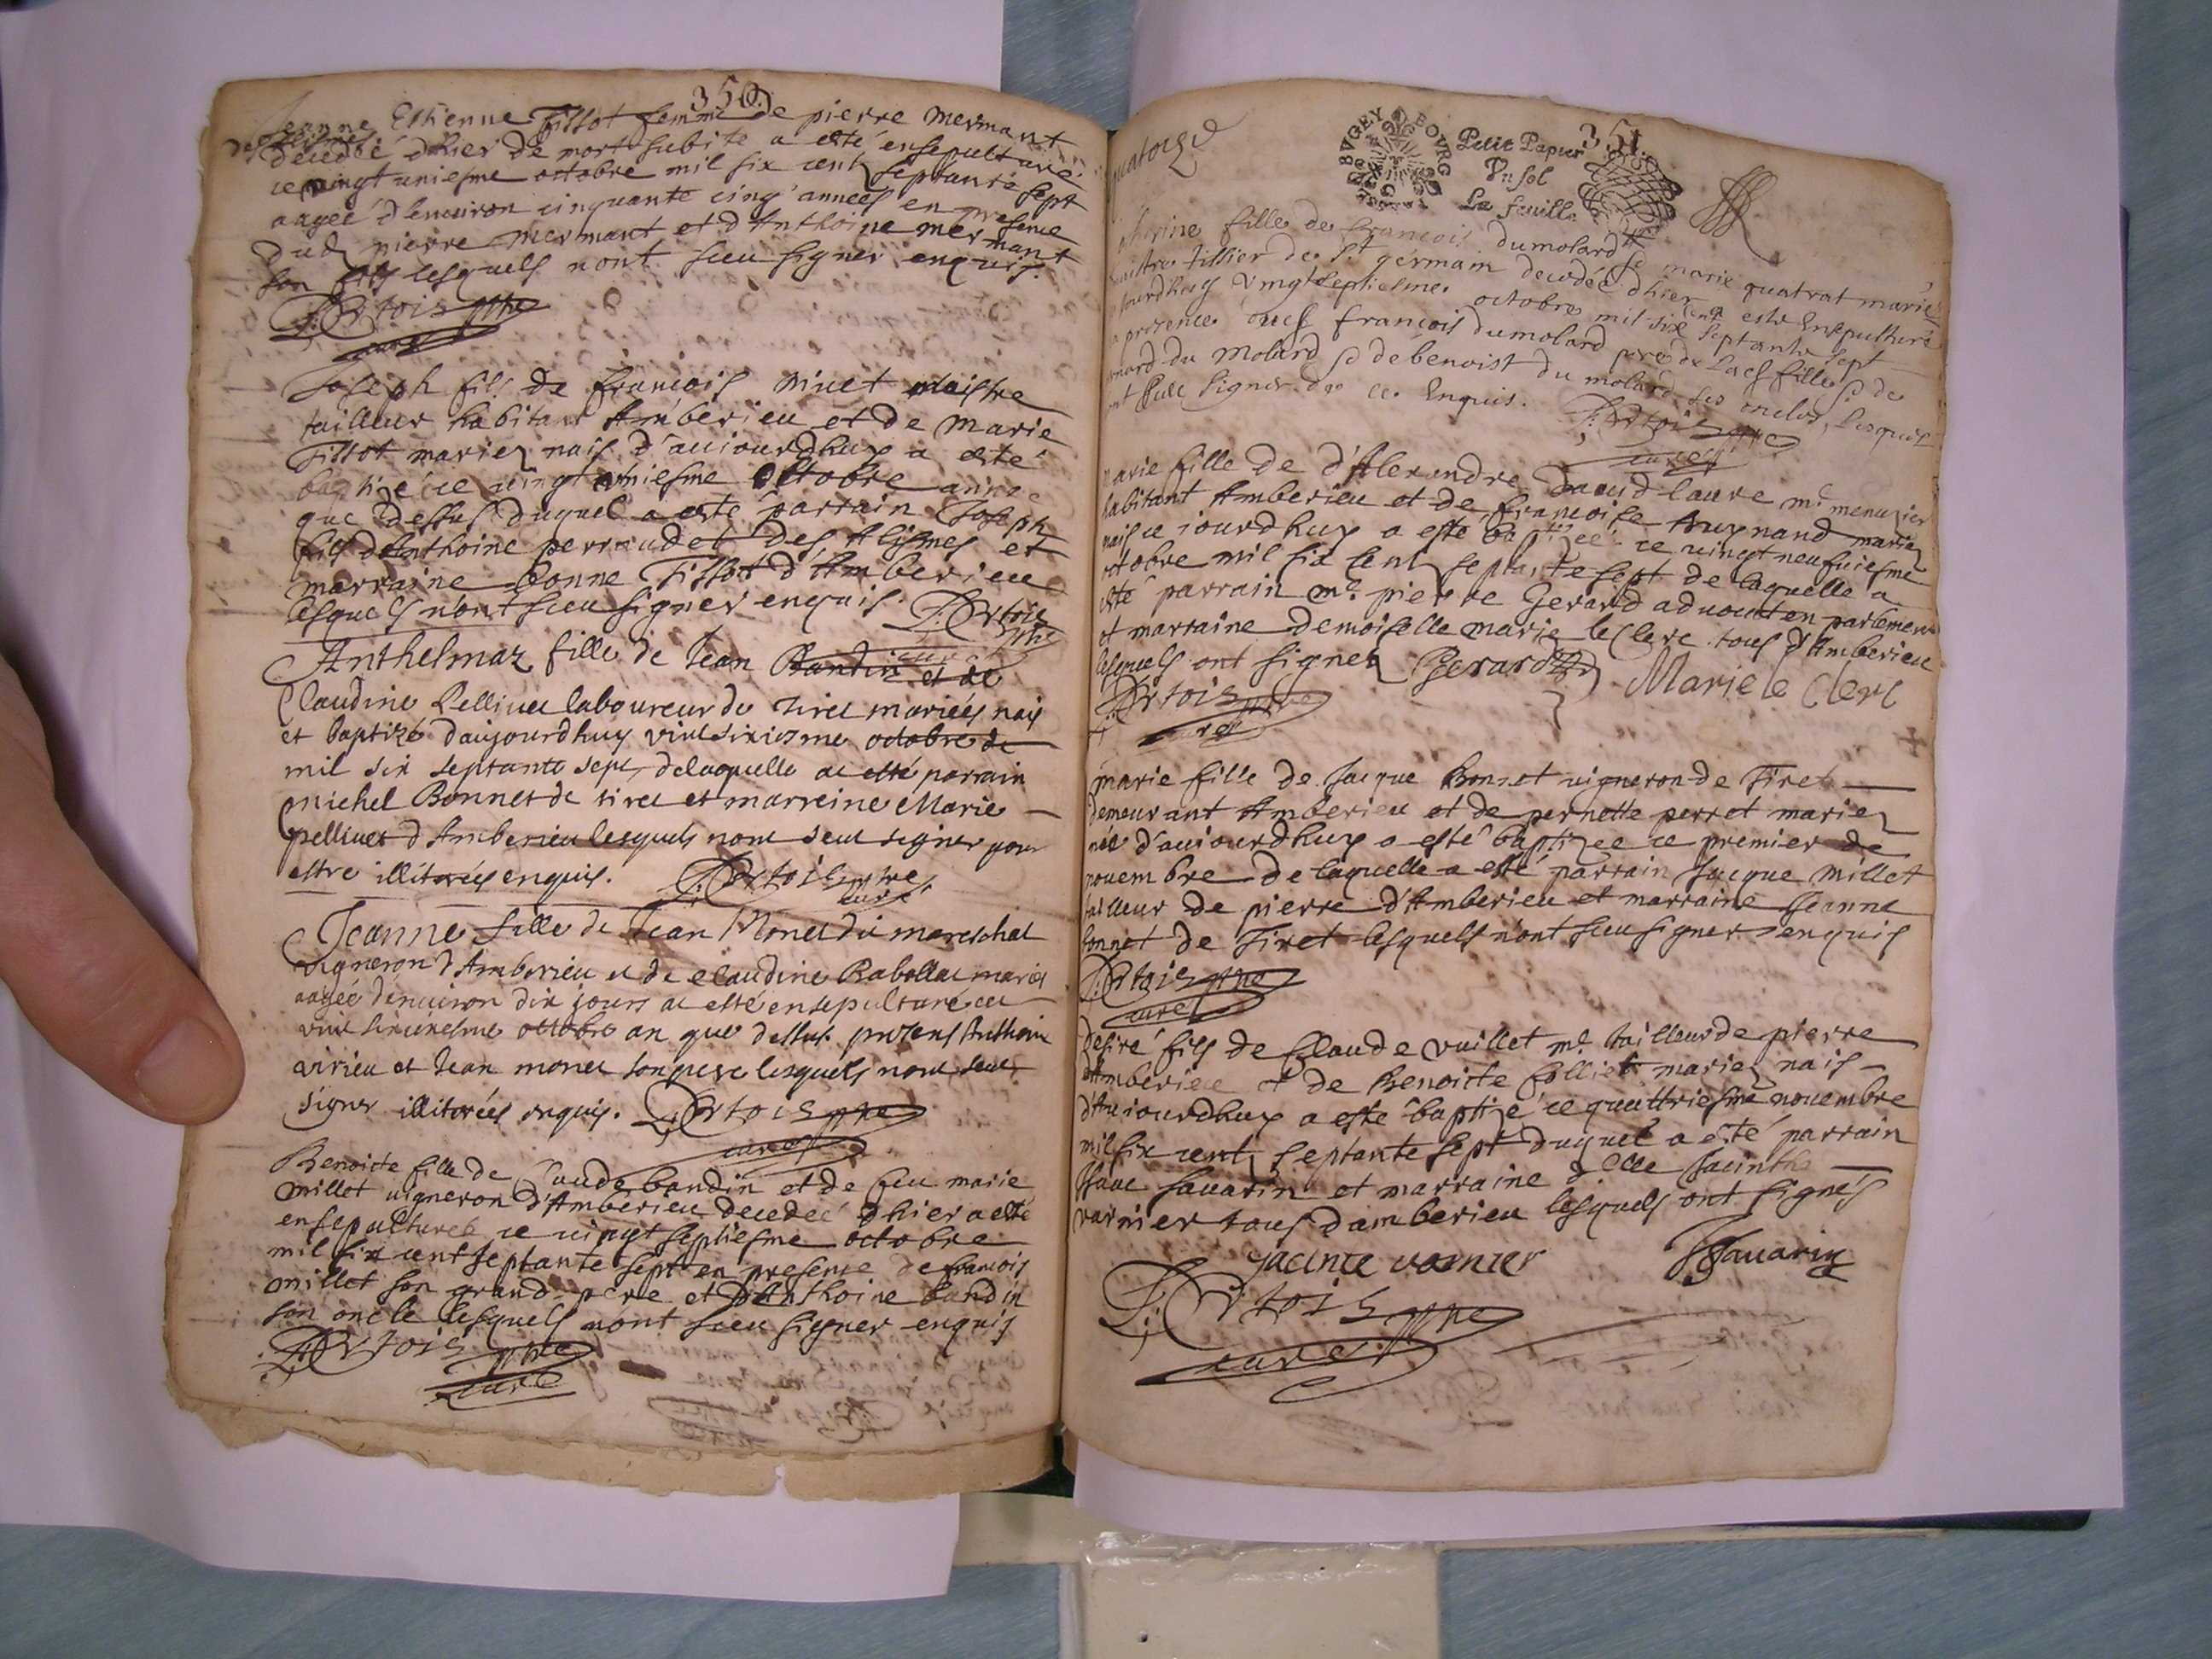 350
Jeanne Esthienne Tissot femme de pierre mermant
des Alismes
decedéé dhier de mort subite a esté ensepulturé
ce vingt uniesme octobre mil six centz septante sept
aagéé d'enuiron cinquante cinq années en presence
dud pierre mermant et d'Anthoine mermant
son fils lesquels n'ont sceu signer enquis.
J: Ortois ptre
curé
Joseph fils de francois niuet maistre
tailleur habitant Amberieu et de marie
Tissot mariez nais d'auiourdhuy a esté
baptizé ce vingt uniesme octobre année
que dessus duquel a esté parrain Joseph
fils d'Anthoine perraudet des Alismes et
marraine bonne Tissot d'Amberieu
lesquels n'ont sceu signer enquis. J: Ortois
ptre
curé
Anthelmaz fille de Jean Bandin et de
Claudine Pelliuet laboureur de Tiret mariéés nais
et baptizé d'aujourdhuy vint sixiesme octobre de
mil six septante sept, delaquelle a esté parrain
michel Bonnet de tiret et marreine Marie
pelliuet d'Amberieu lesquels n'ont sceu signer pour
estre illitarés enquis. J: Ortois ptre
curé
Jeanne fille de Jean Monet dit mareschal
vigneron d'Amberieu et de claudine Rabollat mariés
aagéé d'enuiron dix jours a esté ensepulturé ce
vint sixiesme octobre an que dessus presens Anthoine
virieu et Jean monet son pere lesquels n'ont sceu
signer illitarés enquis. J: Ortois ptre
curé
Benoicte fille de Claude bandin et de feu marie
millet uigneron d'Amberieu decedéé dhier a esté
ensepulturéé ce vingt septiesme octobre
mil six cent septante sept en presence de francois
millet son grand-pere et d'Anthoine bandin
son oncle lesquels n'ont sceu signer enquis
J: Ortois ptre
curé
quatorze
BVGEY BOVRG
Petit Papier
Vn sol
La feuille
351
fille de francois dumolard & marie quatrat mariés
maistre tissier de St germain decedéé dhier a esté Ensepulturé
aujourdhuy vingtseptiesme octobre mil six cent septante sept
en presence dud francois dumolard pere de lad fille & de
du molard & de benoist du molard ses oncles, lesquels
n'ont sceu signer de ce Enquis. J: Ortois ptre
curé
marie fille de d'Alexandre Dauid laure me menuzier
habitant Amberieu et de francoise Auynand mariez
nais ce iourdhuy a esté baptizéé ce vingt neufuiesme
octobre mil six centz septante sept de laquelle a
esté parrain me pierre Gerard aduocat en parlement
et marraine demoiselle marie leClerc tous d'Amberieu
lesquels ont signez PGerard Marie le Clerc
J: Ortois ptre
curé
marie fille de Jacque Bonnet uigneron de Tiret
demeurant Amberieu et de pernette perret mariez
néé d'auiourdhuy a esté baptizéé ce premier de
nouembre de laquelle a esté parrain Jacque millet
tailleur de pierre d'Amberieu et marraine Jeanne
bonnet de Tiret lesquels n'ont sceu signer enquis
J: Ortois ptre
curé
desiré fils de Claude vuillet me tailleur de pierre
d'Amberieu & de Benoicte Colliet mariez nais
d'Auiourdhuy a esté baptizé ce quattriesme nouembre
mil six centz septante sept duquel a esté parrain
Isaac sauarin et marraine delle Jacinthe
varnier tous d'amberieu lesquels ont signés
jacinte varnier JSauarin
J: Ortois ptre
curé